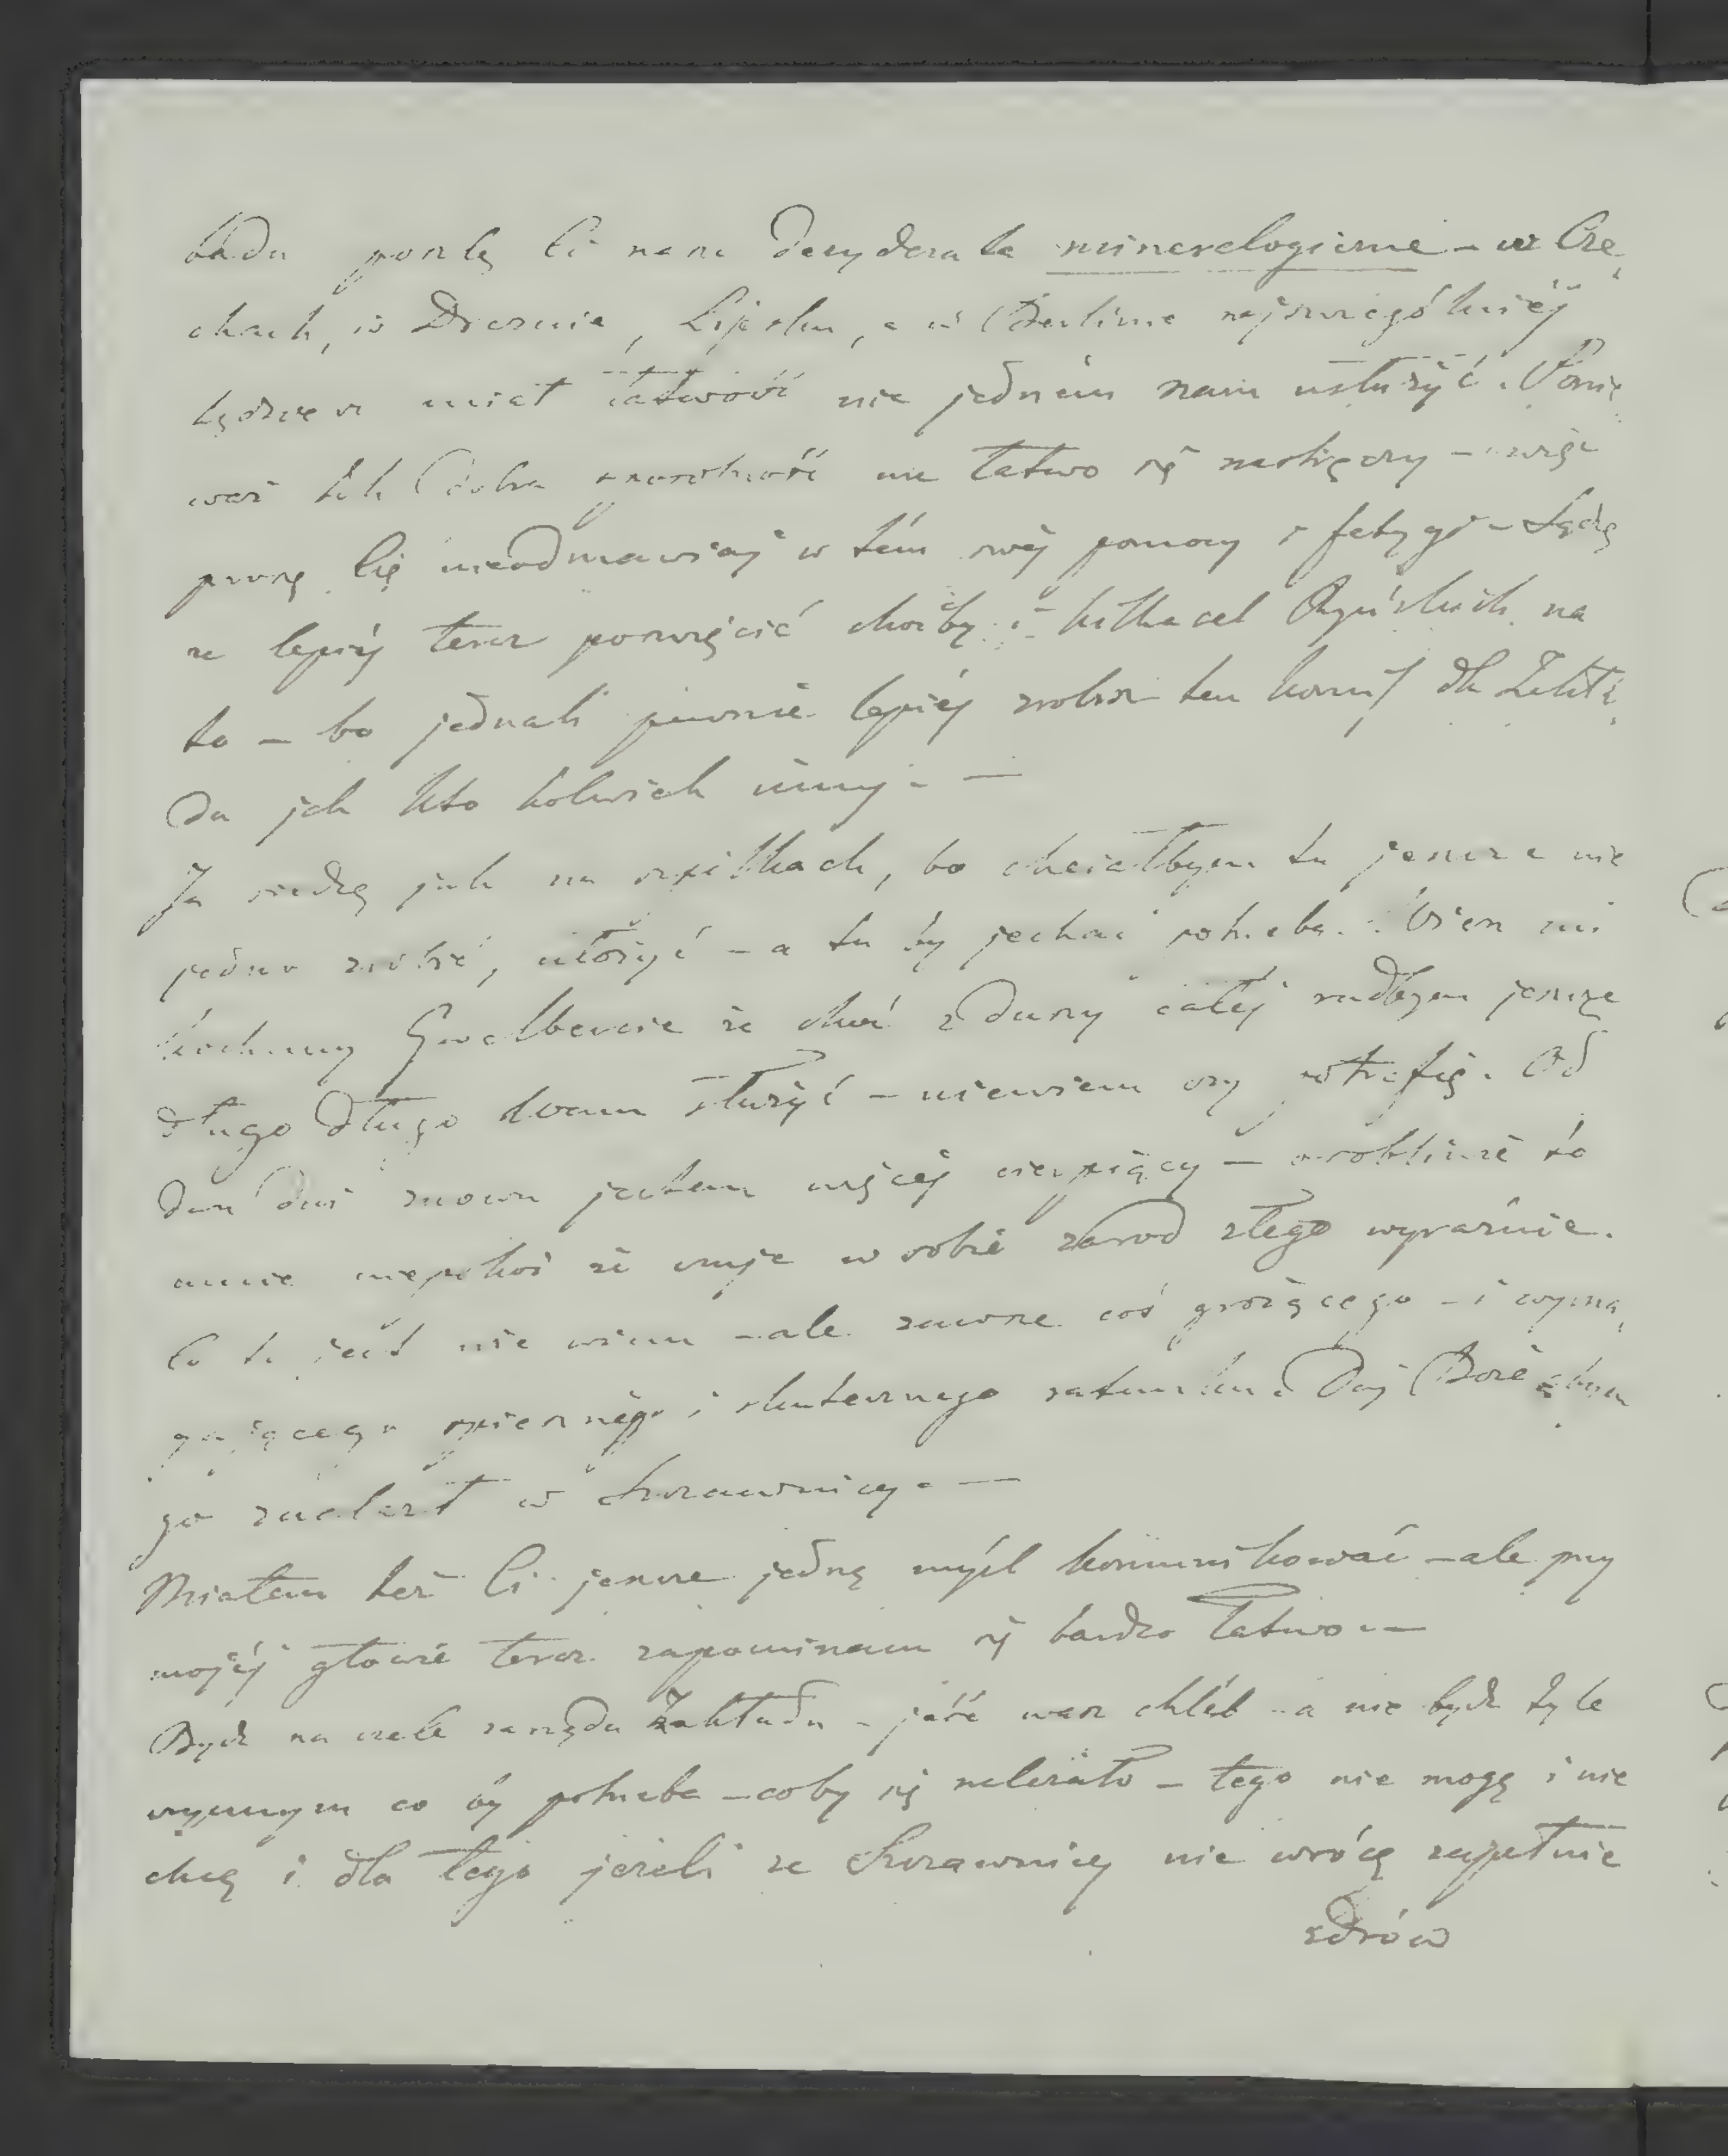 badu poszlę Ci nasze dezyderata mineralogiczne – w Cze,
chach, w Dreznie, Lipsku, a w Berlinie najszczególniéj
będziesz miał łatwość nie jedném nam usłużyć. Ponie,
waż tak dobra sposobność nie łatwo się nastręczy – więc
proszę Cię nieodmawiaj w tém swéj pomocy i fatygi – Sądzę
że lepiéj teraz poświęcić choćby i kilka set Ryńskich na
to – bo jednak pewnie lepiéj zrobisz ten kompl dla Zakła,
du jak kto kolwiek inny. —
Ja siedzę jak na szpilkach, bo chciałbym tu jeszcze nie
jedno zrobić, ułożyć – a tu by jechać potrzeba. Wiesz mi
kochany Gwalbercie że choć z duszy całéj radbym jeszcze
długo długo wam służyć – niewiem czy potrafię. Od
dni znowu jestem więcéj cierpiący – osobliwie to
mnie niepokoi że czuję w sobie zaród złego wyraźnie.
Co to jest nie wiem – ale zawsze coś grożącego – i wyma,
gającego spiesznego i skutecznego ratunku. Daj Boże abym
go znalazł w Szczawnicy. —
Miałem też Ci jeszcze jedną myśl komunikować – ale przy
mojéj głowie teraz zapominam się bardzo łatwo. —
Bydź na czele zarządu Zakładu – jeść wasz chléb – a nie bydź tyle
czynnym co by potrzeba – coby się należało – tego nie mogę i nie
chcę i dla tego jeżeli ze Szczawnicy nie wrócę zupełnie
zdrów